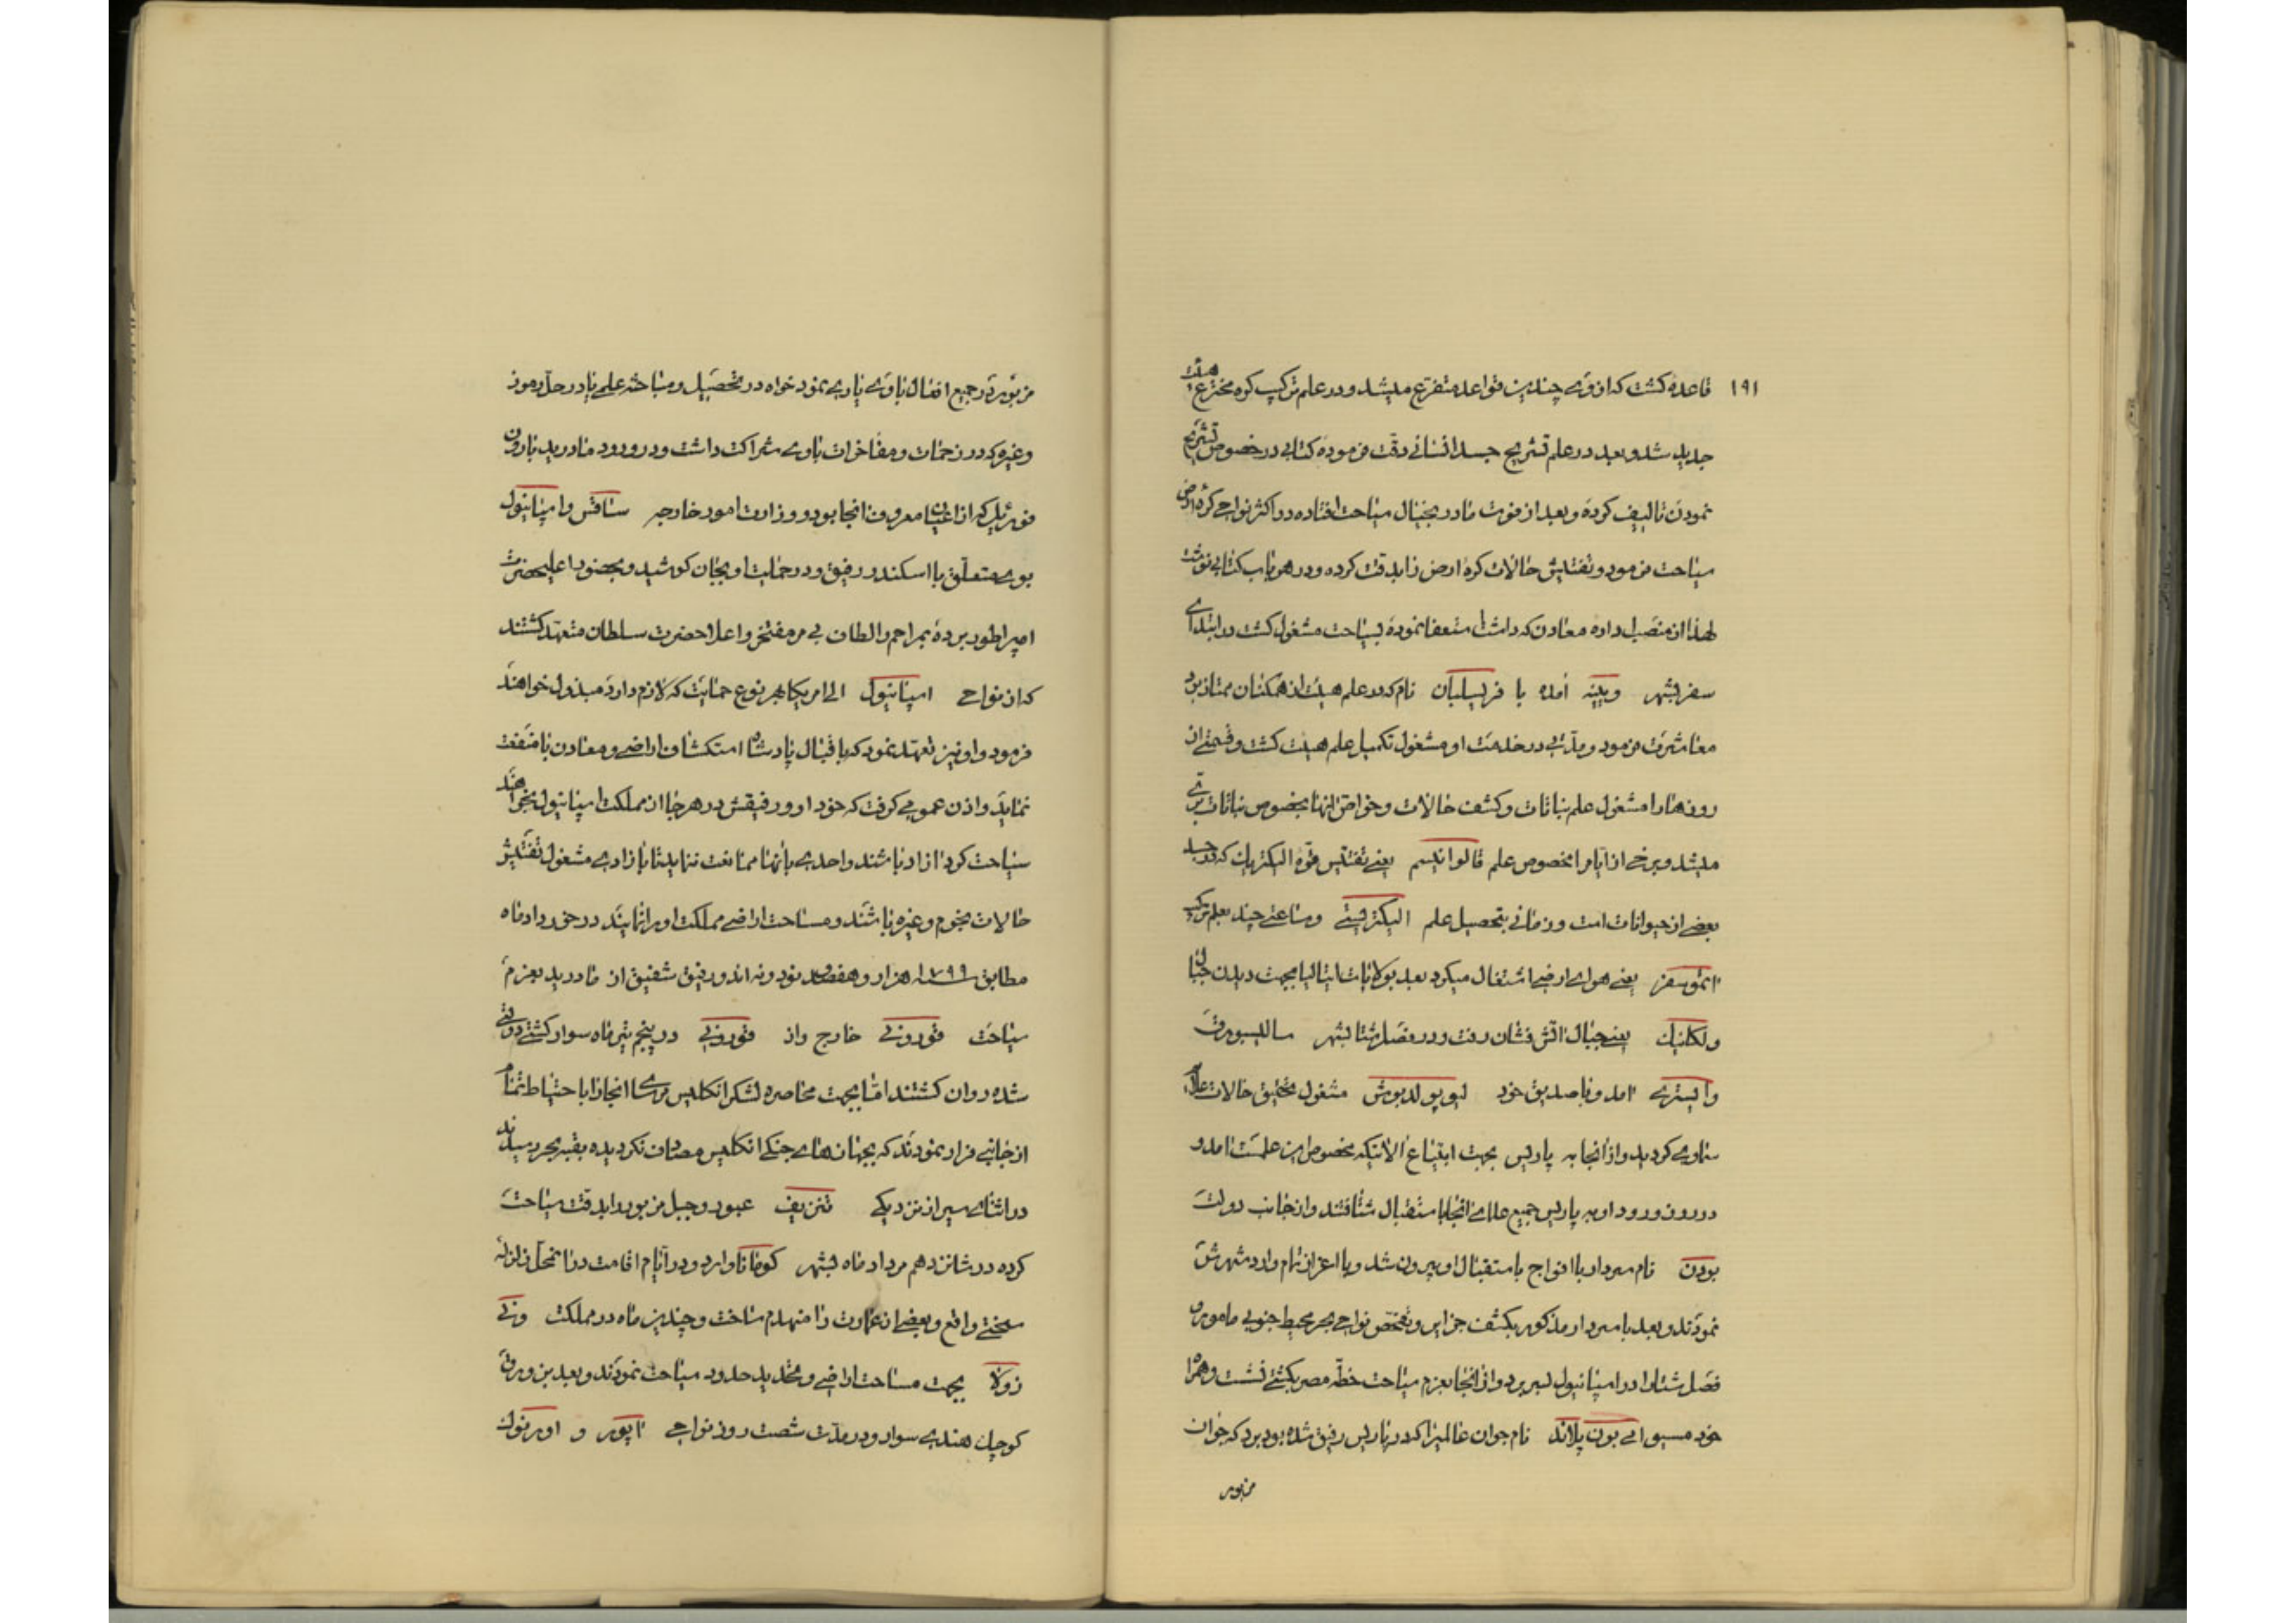 ۱۹۱ قاعدهٔ کشت که از وی چندین قواعد متفرّع میشد و در علم ترکیب کوه مخترع هیئت
جدید شد و بعد در علم تشریح جسد انسانی دقّت فرموده کتابی در خصوص تشریح
نمودن تالیف کرده و بعد از فوت مادر بخیال سیاحت افتاده در اکثر نواحی کرهٔ ارض
سیاحت فرمود و تفتیش حالات کرهٔ ارض زاید دقت کرده و در هر باب کتابی نوشت
لهذا از منصب اداره معادن که داشت استعفا نموده بسیاحت مشغول کشت در ابتدای
سفر بشهر وینه آمده با فریسلبان نام که در علم هیئت از همکنان ممتاز بود
معاشرت فرمود و مدّتی در خدمت او مشغول تکمیل علم هیئت کشت و قسمتی از
روزها را مشغول علم نباتات و کشف حالات و خواص انها بخصوص نباتات برّی
میشد و برخی از ایّام را مخصوص علم قالوانیسم یعنی تفتیش قوّه الیکتریک که در جسد
بعضی از حیوانات است و زمانی بتحصیل علم الیکتریسیتی و ساعتی چند بعلم ترکیب
اتموسفر یعنی هوای ارضی اشتغال میکرد بعد بولایات ایتالیا بجهت دیدن جبال
ولکانیک یعنی جبال اتش فشان رفت و در فصل شتا بشهر سالیسبورق
و استری امد و با صدیق خود لیوپولد بوش مشغول تحقیق حالات علامات
سماوی کردید و از انجا به پاریس بجهت ابتیاع الاتیکه مخصوص این علمست امد و
در روز ورود او به پاریس جمیع علمای انجا باستقبال شتافتند و از جانب دولت
بودن نام سردار با افواج باستقبال او بیرون شد و با اعزاز تمام وارد شهرش
نمودند و بعد با سردار مذکور بکشف جزایر و تفحّص نواحی بحر محیط جنوبی مامور و
فصل شتا را در اسپانیول بسر برد و از انجا بعزم سیاحت خطّه مصر بکشتی نشست و همراه
خود مسیو امی بون پلاند نام جوان عالمی را که در پاریس رفیق شده بود برد که جوان
مزبور
مزبور در جمیع افعال با وی یاری نمود خواه در تحصیل و مباحثه علم یا در حلّ رموز
و غیره که در زحمات و مفاخرات با وی شراکت داشت و در ورود مادرید بارون
فوریل که از اعیان معروف انجا بود و وزارت امور خارجه ساقس و اسپانیول
بوی متعلّق با اسکندر رفیق و در حمایت او بجان کوشید و بحضور اعلیحضرت
امپراطور برده بمراحم و الطاف بی مر مفتخر و اعلاحضرت سلطان متعهّد کشتند
که از نواحی اسپانیول الی امریکا هر نوع حمایت که لازم دارد مبذول خواهند
فرمود و او نیز تعهّد نمود که باقبال پادشاه استکشاف اراضی و معادن با منفعت
نماید و اذن عمومی کرفت که خود او و رفیقش در هر جا از مملکت اسپانیول بخواهند
سیاحت کرد ازاد باشند و احدی بانها ممانعت ننماید تا بازادی مشغول تفتیش
حالات نجوم و غیره باشند و مساحت اراضی مملکت او را نمایند در خورداد ماه
مطابق ۱۷۹۹ هزار و هفصد نود و نه اند و رفیق شفیق از مادرید بعزم
سیاحت قورونی خارج و از قورونی در پنجم تیر ماه سوار کشتی دولتی
شده روان کشتند امّا بجهت محاصره لشکر انکلیس مرسای انجا را با احتیاط تمام
از جانبی فرار نمودند که بجهازهای جنکی انکلیس مصادف نکردیده بقبّه بحر رسیدند
در اثنای سیر از نزدیکی تنریف عبور و جبل مزبور را بدقت سیاحت
کرده در شانزدهم مرداد ماه بشهر کومانا وارد و در ایّام اقامت در انمحلّ زلزله
سختی واقع و بعضی از عمارت را منهدم ساخت و چندین ماه در مملکت ونی
زولا بجهت مساحت اراضی و تحدید حدود سیاحت نمودند و بعد بزورق
کوچک هندی سوار و در مدّت شصت روز نواحی اپور و اورنوک